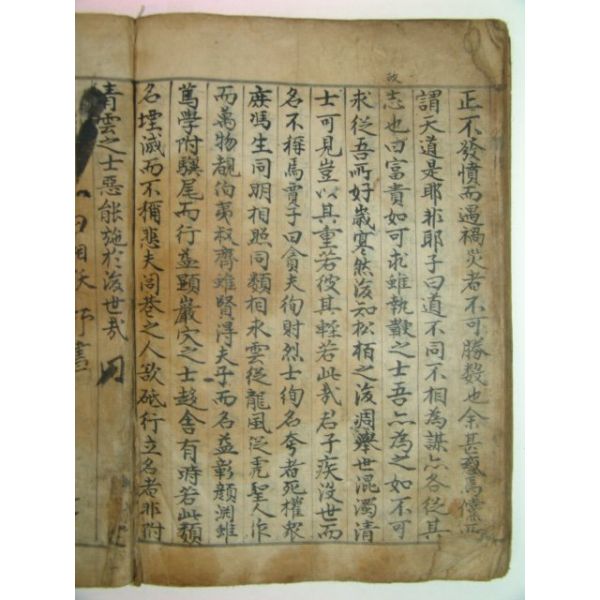 正不發憤而遇禍災者不可勝數也余甚惑焉儻所
謂天道是耶非耶子曰道不同不相為謀亦各從其
故
志也曰富貴如可求雖執鞭之士吾亦為之如不可
求從吾所好歲寒然後知松栢之後凋舉世混濁清
士可見豈以其重若彼其輕若此哉君子疾没世而
名不稱焉賈子曰貪夫徇財烈士徇名夸者死權衆
庶馮生同明相照同類相求雲從龍風從虎聖人作
而萬物覩伯夷叔齊雖賢得夫子而名益彰顔淵雖
篤學附驥尾而行益顯巖穴之士趍舍有時若此類
名堙滅而不稱悲夫閭巷之人欲砥行立名者非附
青雲之士惡能施於後世哉